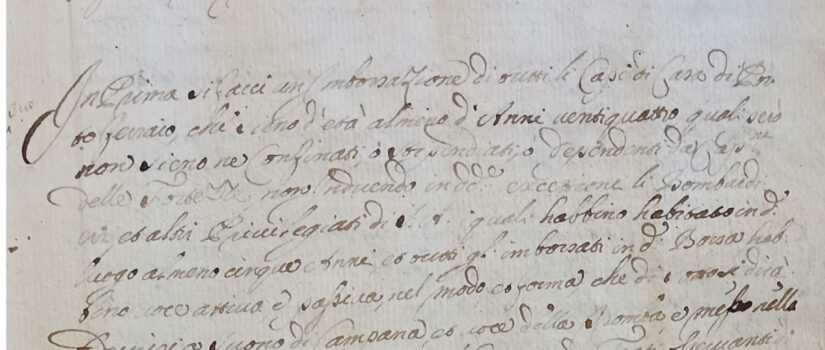 In Prima si facci un Imborsazione di tutti li Capi di Casa di Por-
to ferraio, che sieno d'età almeno d'Anni ventiquattro quali però
non sieno ne Confinati, o stipendiati, o dependenti da
delle Fortezze, non inducendo in d.ᵃ excettione li Bombardi
et altri Privilegiati di quali habbino habitato in d.º
luogo almeno cinque Anni, et tutti gl'imborsati in d.ª Borsa hab-
bino voce attiva e passiva, nel modo et forma che di sotto si dirà
a suono di Campana et voce della Tromba e messo nella